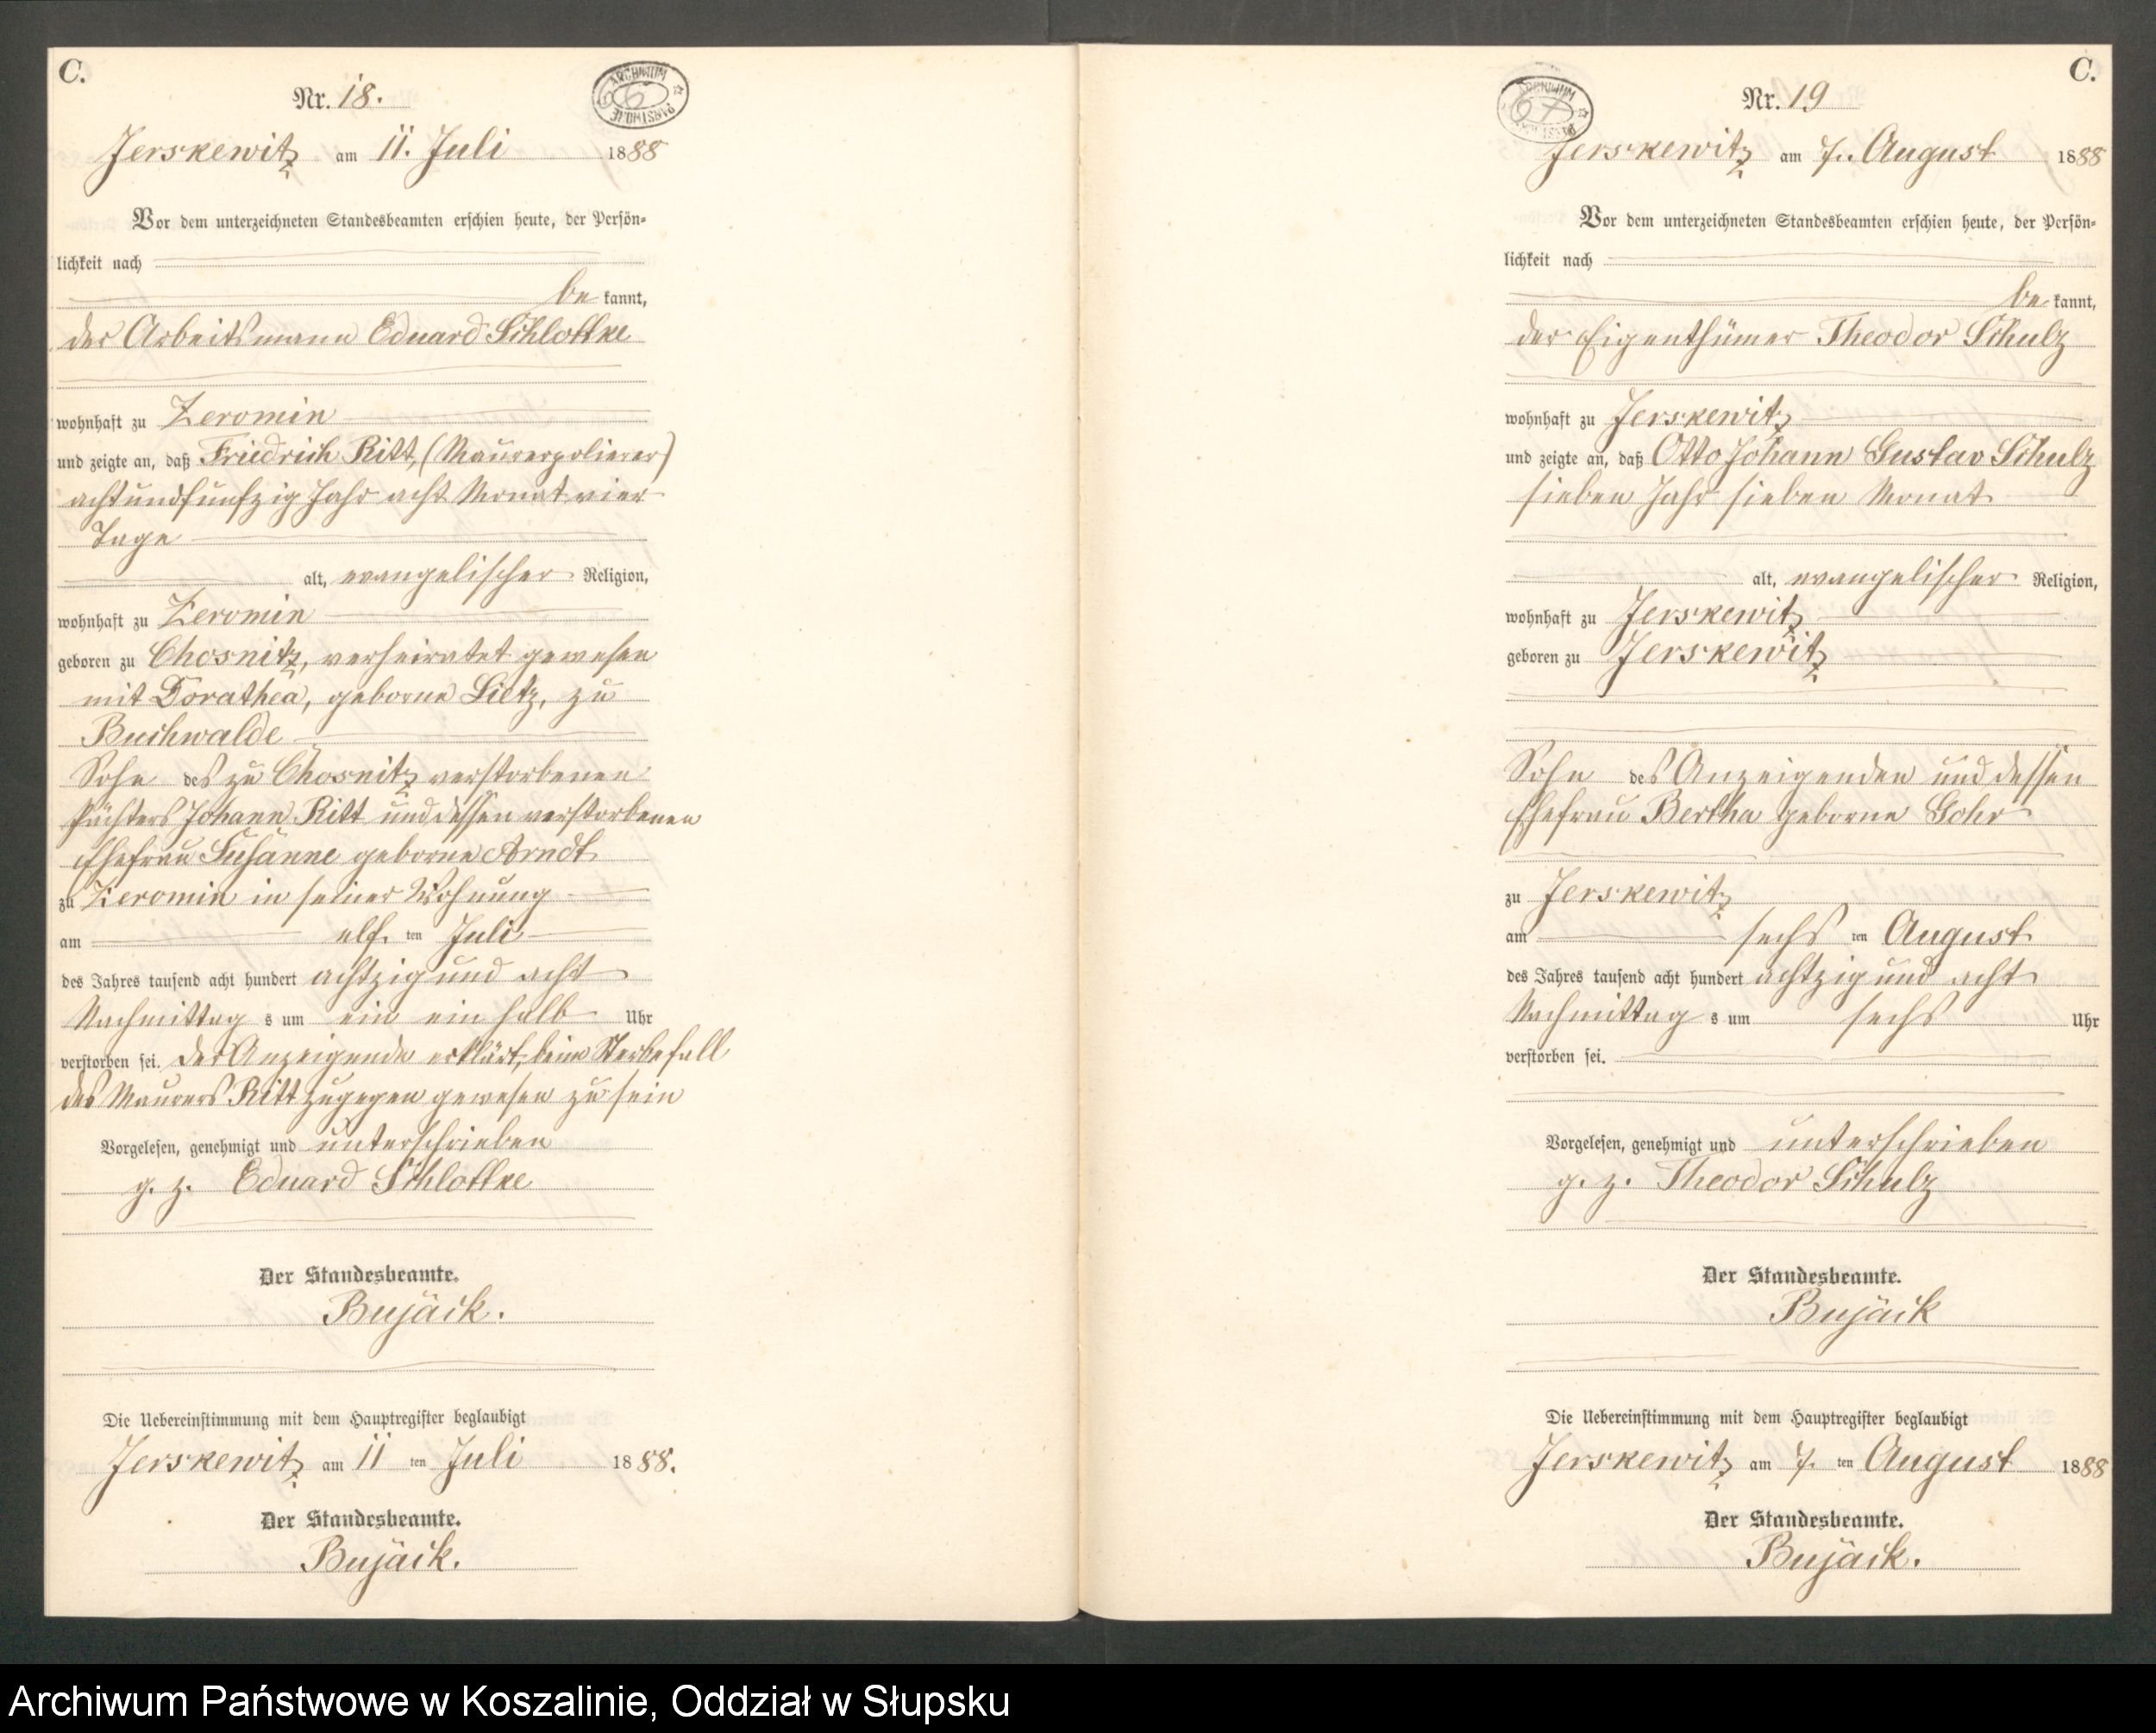 C.
Nr. 18.
ARCHIWUM
PAŃSTWOWE
66
Jerskewitz am 11. Juli 1888
Vor dem unterzeichneten Standesbeamten erschien heute, der Persön-
lichkeit nach
be kannt,
der Arbeitsmann Eduard Schlottke
wohnhaft zu Zeromin
und zeigte an, daß Friedrich Ritt, (Maurerpolierer)
achtundfünfzig Jahr acht Monat vier
Tage
alt, evangelischer Religion,
wohnhaft zu Zeromin
geboren zu Chosnitz, verheiratet gewesen
mit Dorathea, geborne Lietz, zu
Buchwalde
Sohn des zu Chosnitz verstorbenen
Pächters Johann Ritt und dessen verstorbenen
Ehefrau Susanne geborne Arndt
zu Zeromin in seiner Wohnung
am elf. ten Juli
des Jahres tausend acht hundert achtzig und acht
Nachmittag s um ein ein halb Uhr
verstorben sei. Der Anzeigende erklärt, beim Sterbefall
des Maurers Ritt zugegen gewesen zu sein
Vorgelesen, genehmigt und unterschrieben
g. z. Eduard Schlottke
Der Standesbeamte.
Bujack.
Die Uebereinstimmung mit dem Hauptregister beglaubigt
Jerskewitz am 11 ten Juli 1888.
Der Standesbeamte.
Bujack.
C.
Nr. 19
ARCHIWUM
67
Jerskewitz am 7. August 1888
Vor dem unterzeichneten Standesbeamten erschien heute, der Persön-
lichkeit nach
be kannt,
der Eigenthümer Theodor Schulz
wohnhaft zu Jerskewitz
und zeigte an, daß Otto Johann Gustav Schulz
sieben Jahr sieben Monat
alt, evangelischer Religion,
wohnhaft zu Jerskewitz
geboren zu Jerskewitz
Sohn des Anzeigenden und dessen
Ehefrau Bertha geborne Gohr
zu Jerskewitz
am sechs ten August
des Jahres tausend acht hundert achtzig und acht
Nachmittag s um sechs Uhr
verstorben sei.
Vorgelesen, genehmigt und unterschrieben
g. z. Theodor Schulz
Der Standesbeamte.
Bujack
Die Uebereinstimmung mit dem Hauptregister beglaubigt
Jerskewitz am 7. ten August 1888
Der Standesbeamte.
Bujack.
Archiwum Państwowe w Koszalinie, Oddział w Słupsku